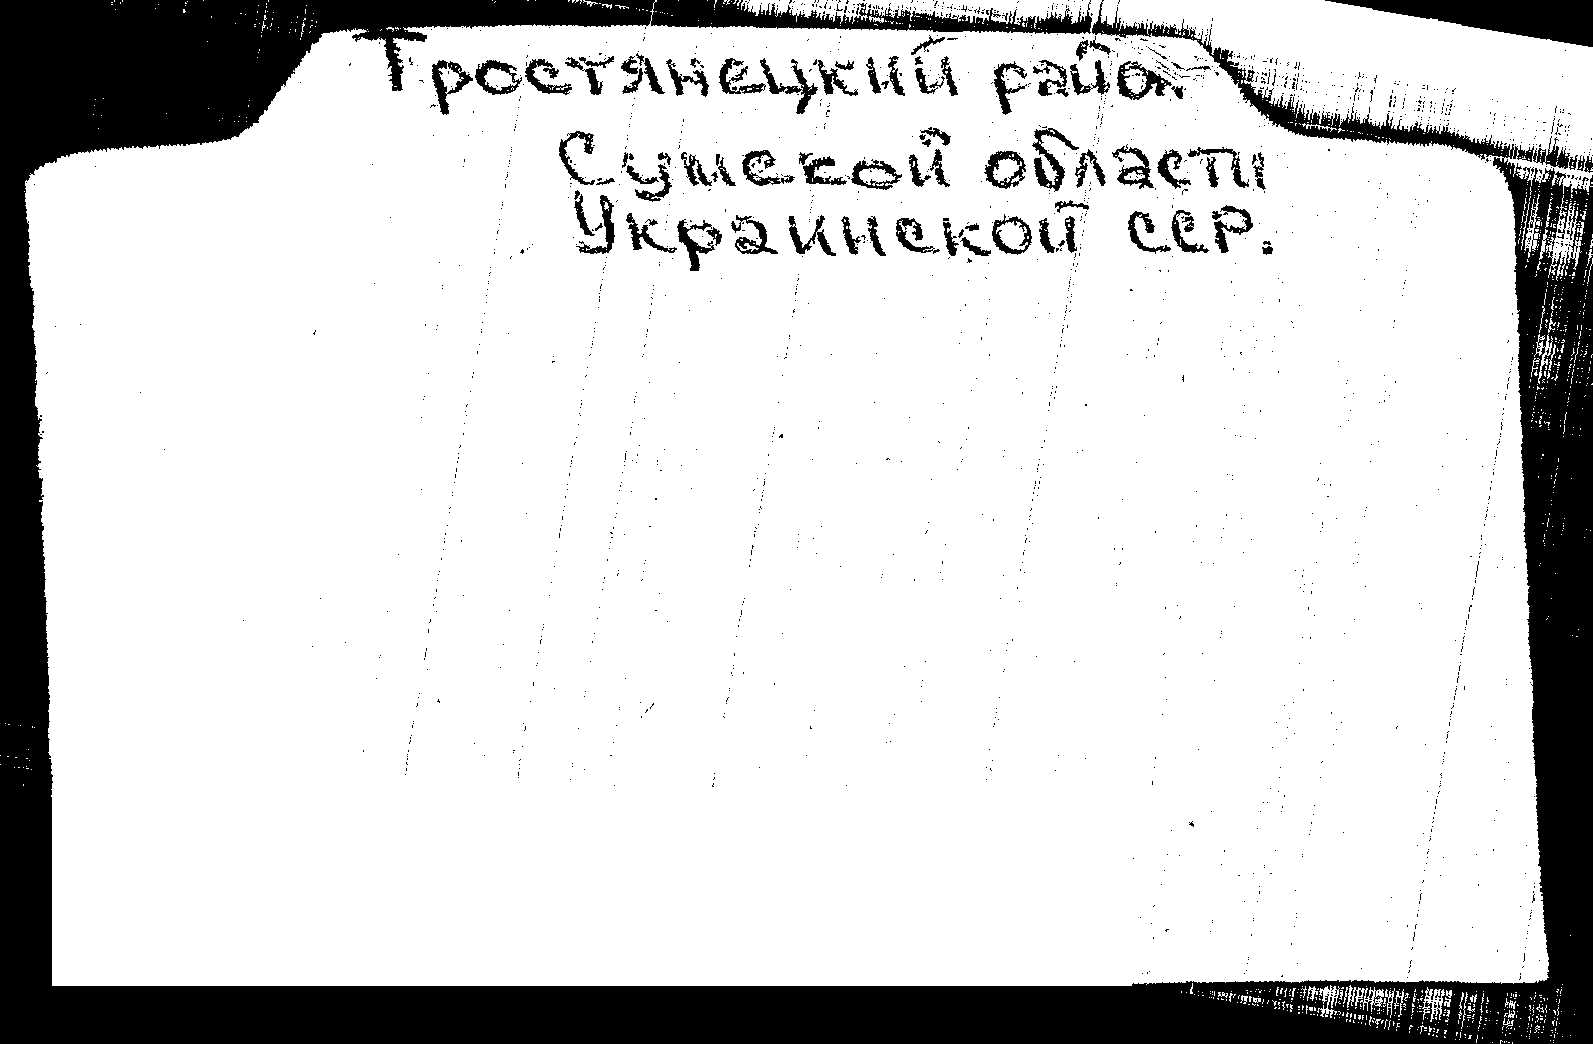 Тростянецкий район
Сумской области
Украинской ССР.